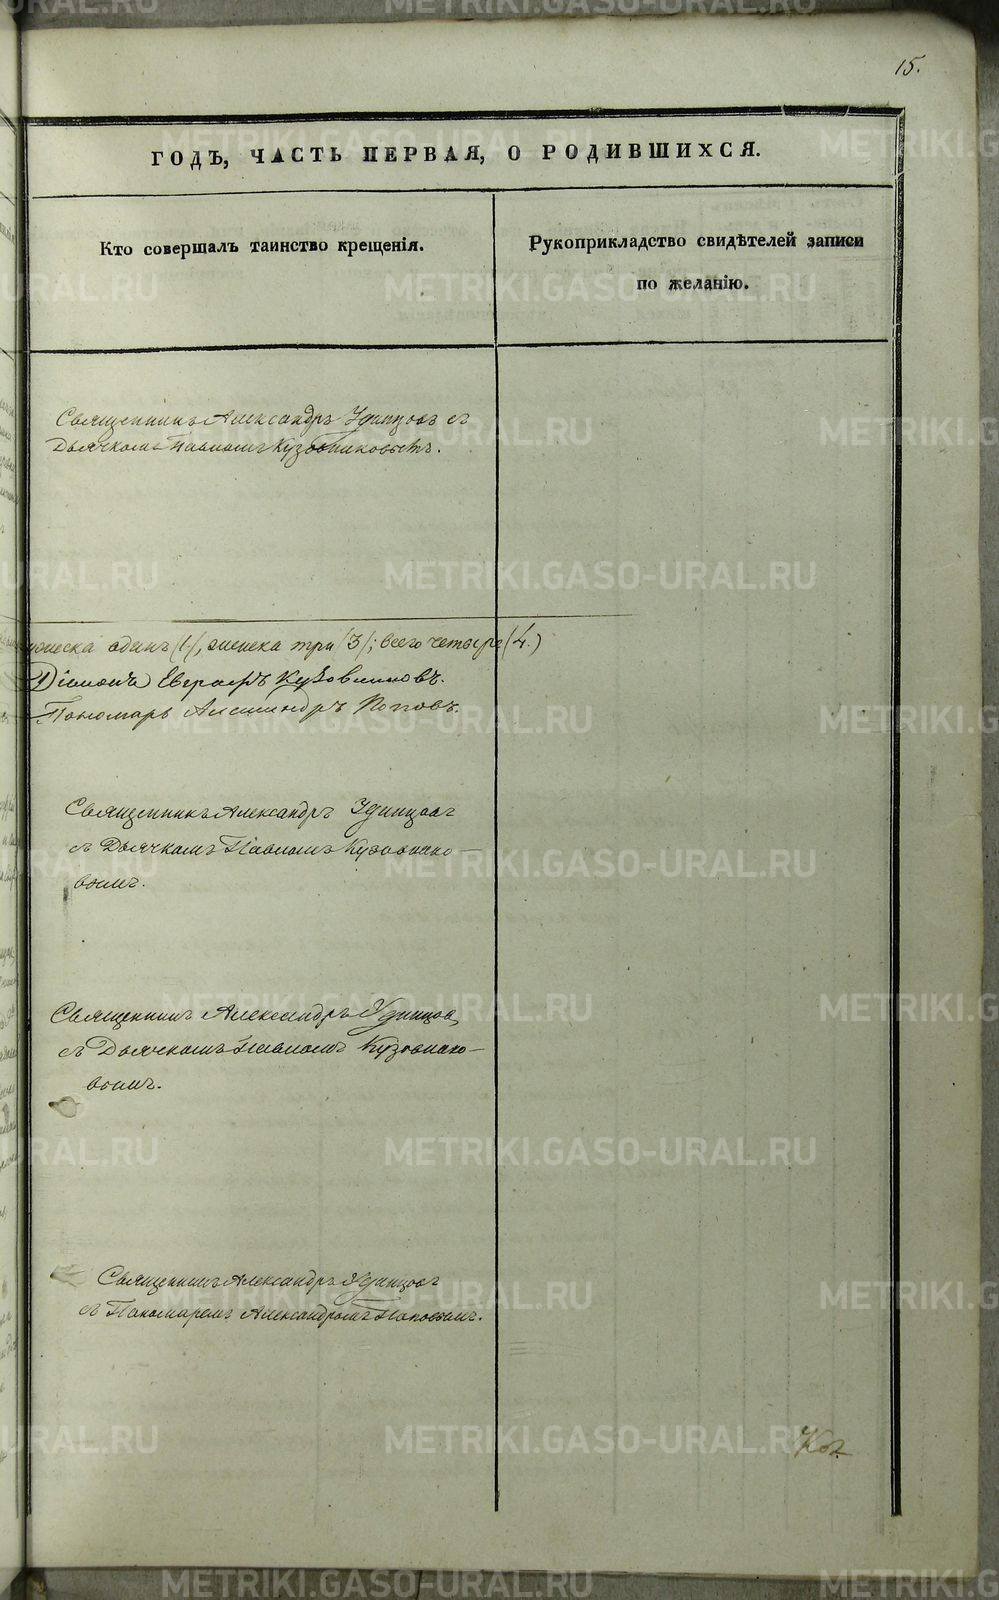 15.
ГОДЪ, ЧАСТЬ ПЕРВАЯ, О РОДИВШИХСЯ.
Кто совершалъ таинство крещенія.
Рукоприкладство свидѣтелей записи
по желанію.
Священникъ Александръ Удинцовъ съ
Дьячкомъ Павломъ Кузовниковымъ.
пола один (1), женска три (3); всего четыре (4.)
Діаконъ Евграфъ Кузовниковъ.
Пономарь Александръ Поповъ.
Священникъ Александръ Удинцовъ
съ Дьячкомъ Павломъ Кузовнико-
вымъ.
Священникъ Александръ Удинцовъ
съ Дьячкомъ Павломъ Кузовнико-
вымъ.
Священникъ Александръ Удинцовъ
съ Пономаремъ Александромъ Поповымъ.
METRIKI.GASO-URAL.RU